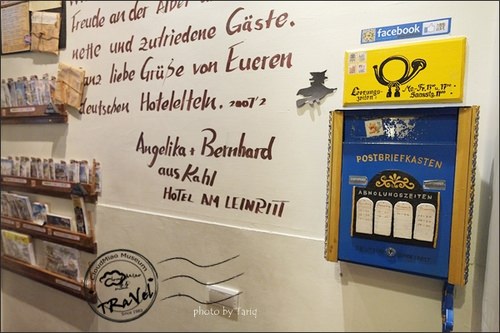 Freude an der Arbeit
nette und zufriedene Gäste.
Ganz liebe Grüße von Eueren
deutschen Hoteleltern. 2007/2
Angelika + Bernhard
aus Kahl
HOTEL AM LEINRITT
facebook
Leerungs-
zeiten:
Mo.-Fr.
Samstg.
POSTBRIEFKASTEN
ABHOLUNGSZEITEN
Museum
TRaVel
photo by fariq